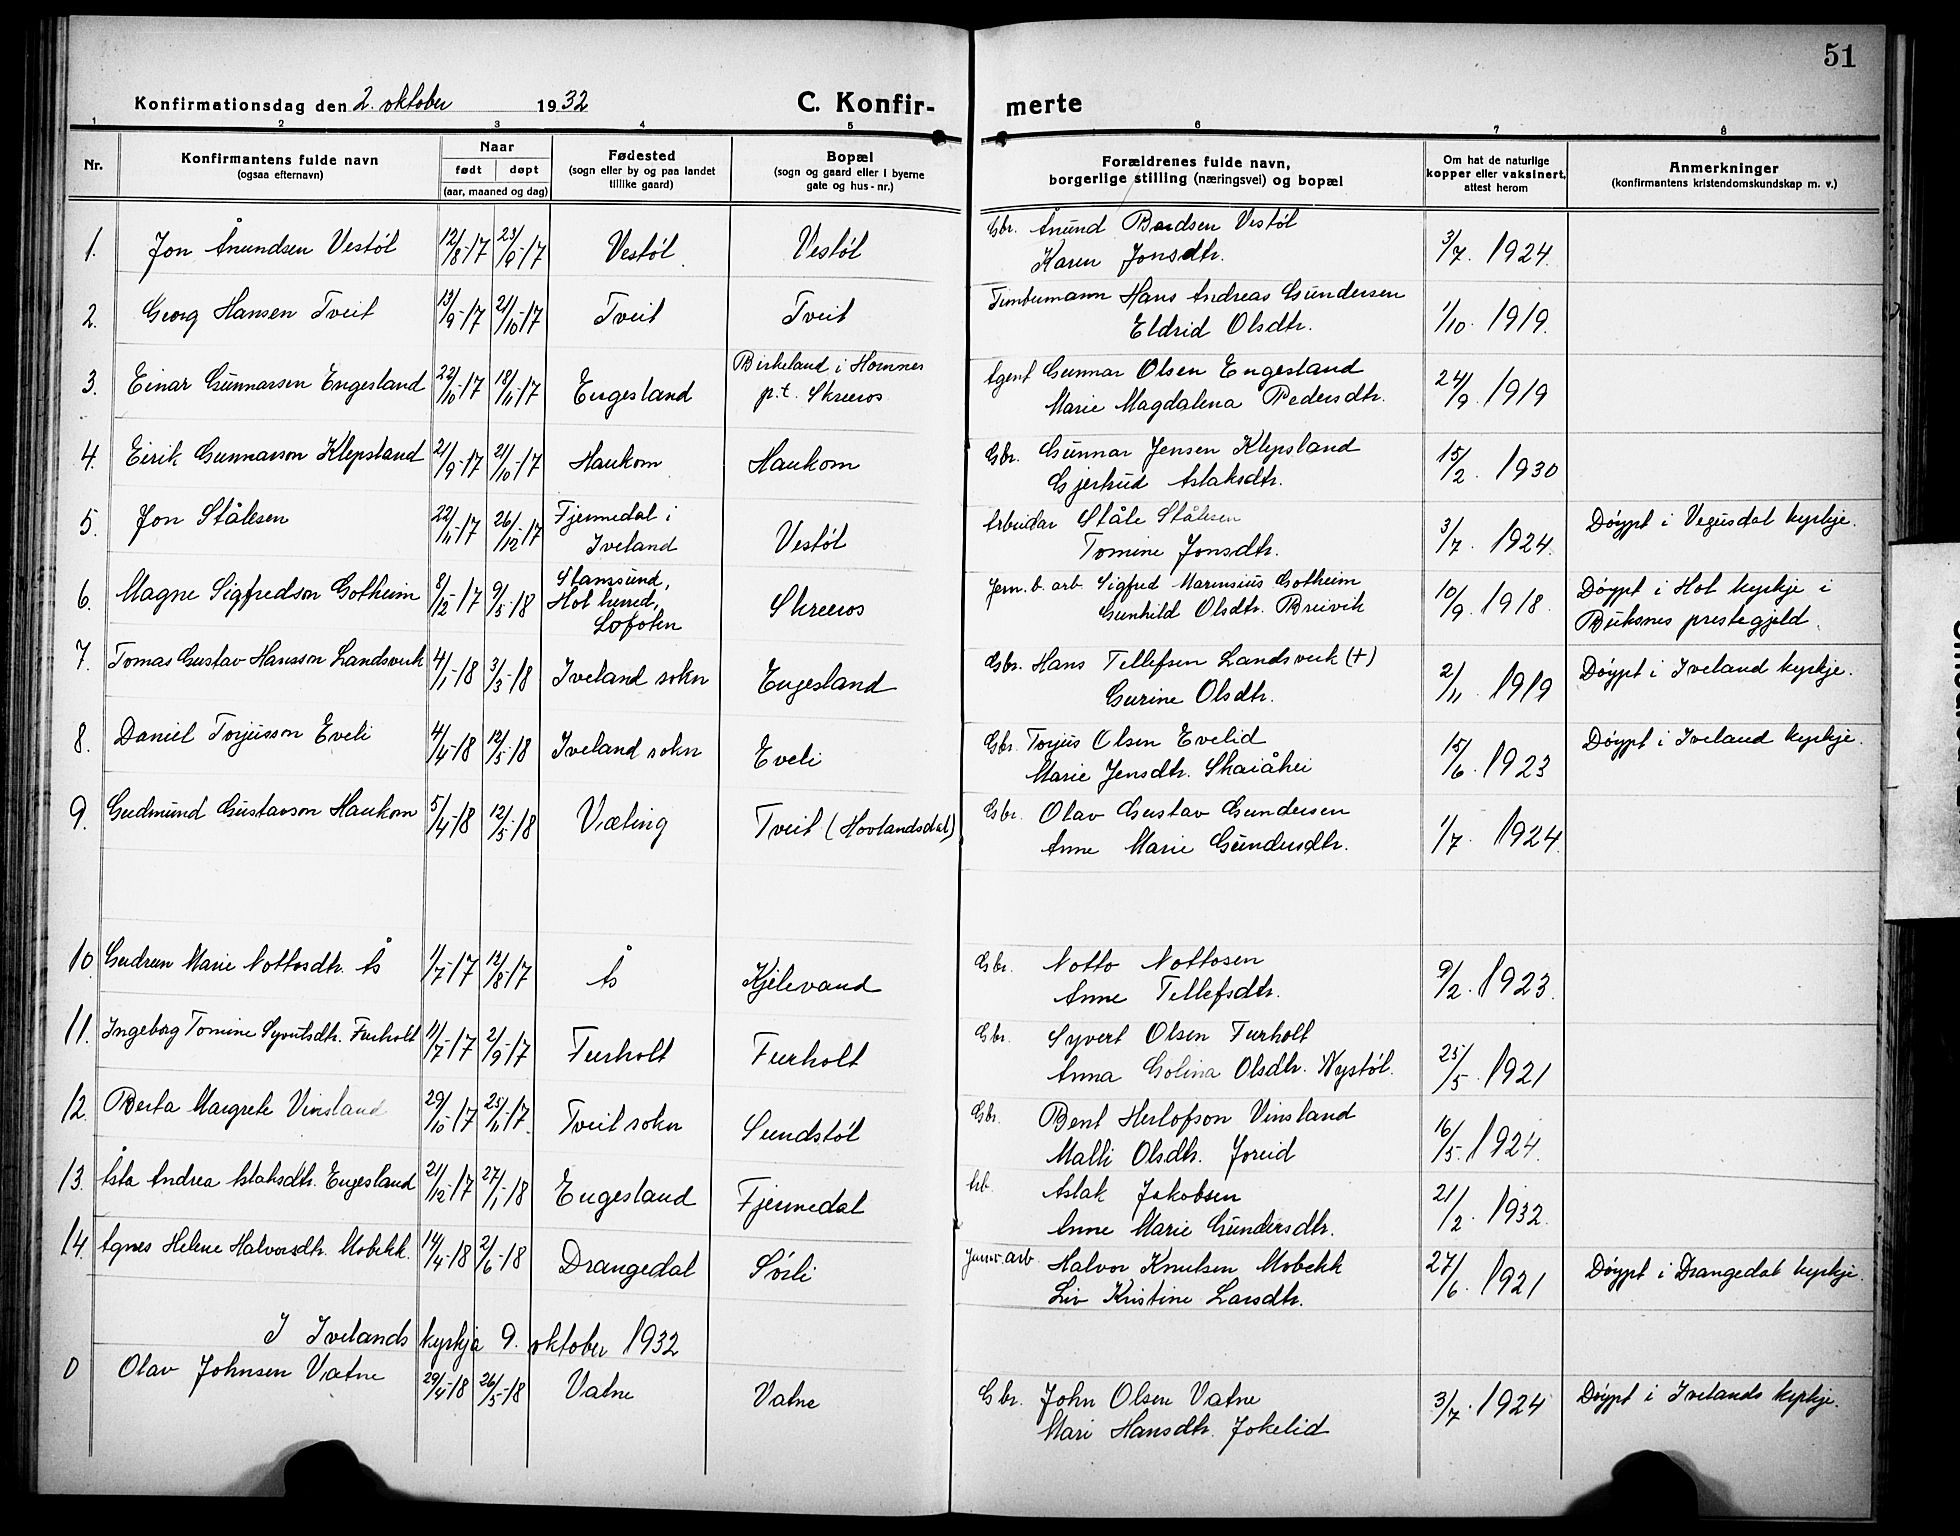 51
Konfirmationsdag den 2. oktober 1932
C. Konfirmerte
1 2 3 4 5 6 7 8
Nr.
Konfirmantens fulde navn
(ogsaa efternavn)
Naar
født døpt
(aar, maaned og dag)
Fødested
(sogn eller by og paa landet
tillike gaard)
Bopæl
(sogn og gaard eller i byerne
gate og hus-nr.)
Forældrenes fulde navn,
borgerlige stilling (næringsvei) og bopæl
Om hat de naturlige
kopper eller vaksinert,
attest herom
Anmerkninger
(konfirmantens kristendomskundskap m. v.)
1. Jon Ånundsen Vestøl 12/8-17 23/9-17 Vestøl Vestøl Gbr. Ånund Bardsen Vestøl 3/7. 1924.
Karen Jonsdtr.
2. Georg Hansen Tveit 13/9-17 21/10-17 Tveit Tveit Tømbermann Hans Andreas Gundersen 1/10. 1919.
Eldrid Olsdtr.
3. Einar Gunnarsen Engesland 22/10-17 18/11-17 Engesland Birkeland i Homnes Agent Gunnar Olsen Engesland 24/9. 1919
p.t. Skreros Marie Magdalena Pedersdtr.
4. Eirik Gunnarson Klepsland 21/9-17 21/10-17 Haukom Haukom Gbr. Gunnar Jensen Klepsland 15/2. 1930
Gjertrud Aslaksdtr.
5. Jon Stålesen 22/11-17 26/12-17 Fjermedal i Vestøl Arbeidar Ståle Stålesen 3/7. 1924. Døypt i Vegusdal kyrkje.
Iveland Tomine Jonsdtr.
6. Magne Sigfredson Gotheim 8/12-17 9/5-18 Stamsund, Skreros Jern.b. arb. Sigfred Marensius Gotheim 10/9. 1918. Døypt i Hol kyrkje i
Hol herred, Gunhild Olsdtr. Breivik Buksnes prestegjeld.
Lofoten
7. Tomas Gustav Hansson Landsverk 4/1-18 3/3-18 Iveland sokn Engesland Gbr. Hans Tellefsen Landsverk (+) 2/11. 1919 Døypt i Iveland kyrkje.
Gurine Olsdtr.
8. Daniel Torjusson Eveli 4/4-18 12/5-18 Iveland sokn Eveli Gbr. Torjus Olsen Evelid 15/6. 1923 Døypt i Iveland kyrkje.
Marie Jensdtr. Skaiåhei
9. Gudmund Gustavson Haukom 5/4-18 12/5-18 Væting Tveit (Hovlandsdal) Gbr. Olav Gustav Gundersen 1/7. 1924.
Anne Marie Gundersdtr.
10. Gudrun Marie Nottosdtr. Ås 1/7-17 12/8-17 Ås Kjelevand Gbr. Notto Nottosen 9/2. 1923.
Anne Tellefsdtr.
11. Ingeborg Tomine Syvertsdtr. Furholt 11/7-17 2/9-17 Furholt Furholt Gbr. Syvert Olsen Furholt 25/5. 1921
Anna Golina Olsdtr. Nystøl.
12. Berta Margrete Vinsland 29/10-17 25/11-17. Tveit sokn Sundstøl Gbr. Bent Herlofson Vinsland 16/5. 1924.
Malli Olsdtr. Joreid
13. Åsta Andrea Aslaksdtr. Engesland 21/12-17 27/1-18 Engesland Fjermedal Arb. Aslak Jakobsen 21/2. 1932.
Anne Marie Gundersdtr.
14. Agnes Helene Halvorsdtr. Mobekk. 14/4-18 2/6-18 Drangedal Sørli Jernv. arb Halvor Knutsen Mobekk 27/6. 1921 Døypt i Drangedal kyrkje.
Liv Kristine Larsdtr.
I Ivelands kyrkja 9. oktober 1932
0 Olav Johnsen Vatne 29/4-18 26/5-18 Vatne Vatne Gbr. John Olsen Vatne 3/7. 1924 Døypt i Ivelands kyrkje.
Mari Hansdtr. Jokelid